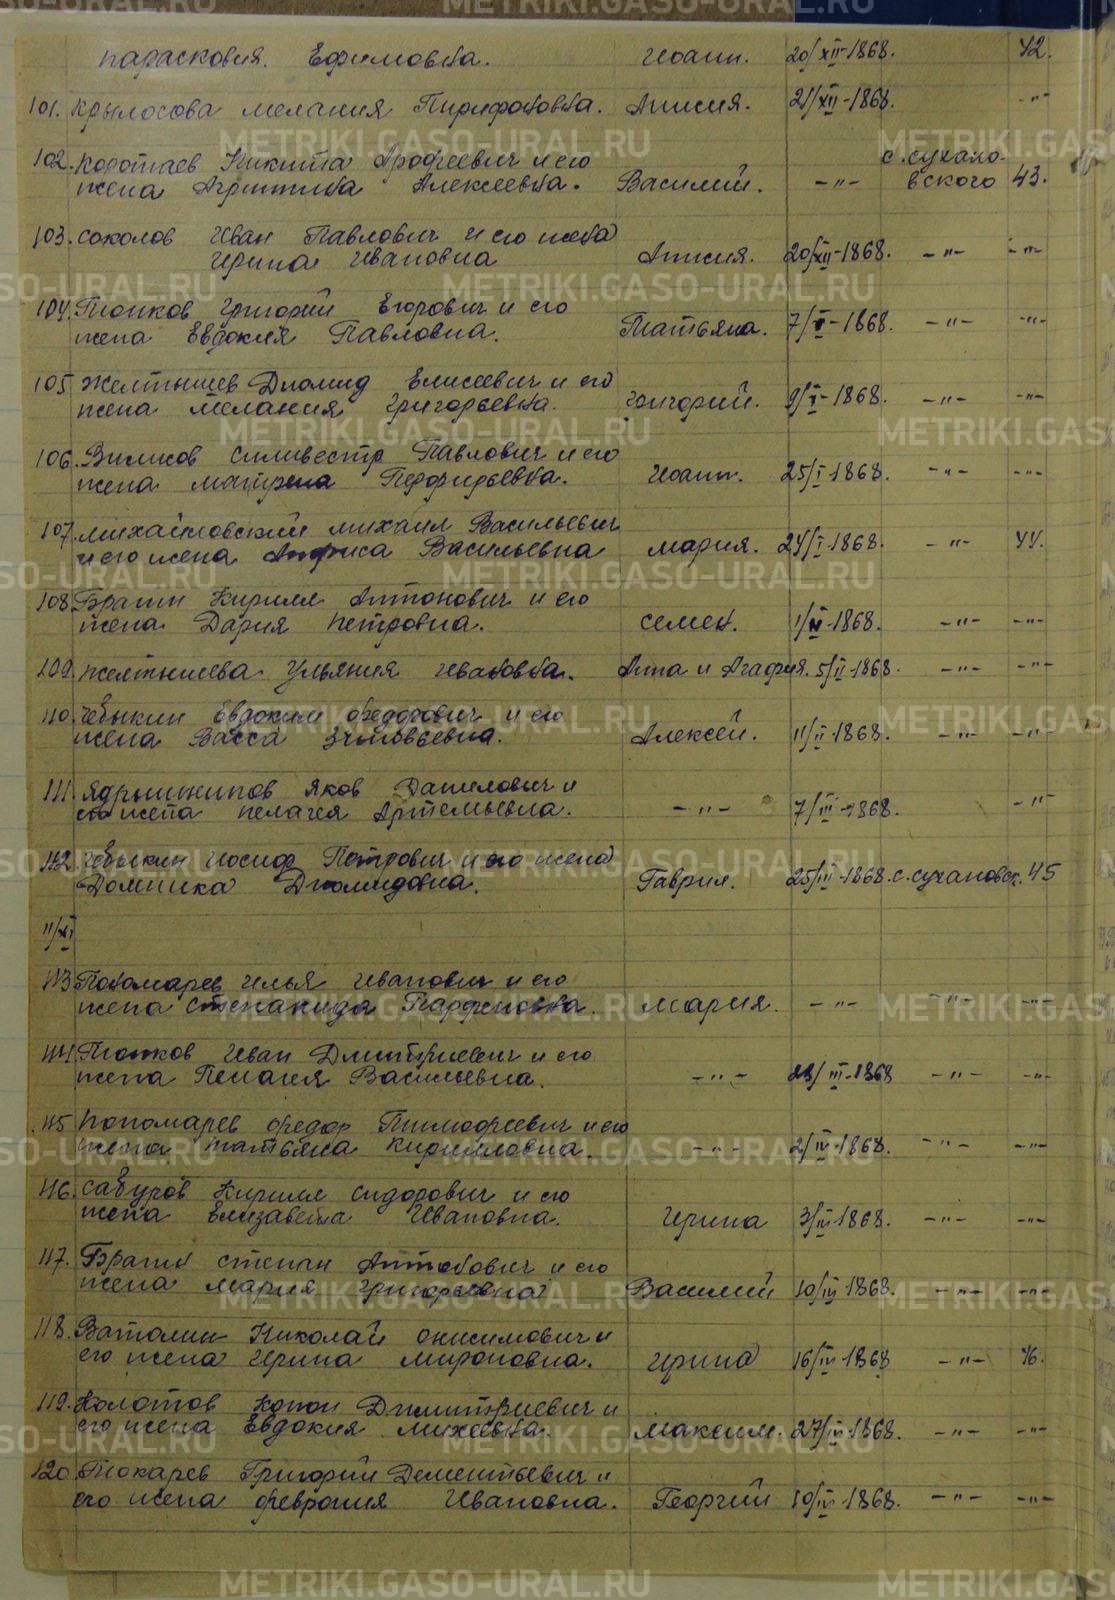 METRIKI.GASO-URAL.RU
Парасковия. Ефимовна. Иоанн. 20/XII-1868. 42.
101. Крылосова Мелания Анисия. 21/XII-1868. -"-
102. Коротаев Никита Ерофеевич и его с. Сухано-
жена Агриппина Алексеевна. Василий. -"- вского 43.
103. Соколов Иван Павлович и его жена
Ирина Ивановна Анисия. 20/XII-1868. -"- -"-
104. Григорий Егорович и его
жена Евдокия Павловна. Татьяна. 7/I-1868. -"- -"-
105 Желтышев Диомид Елисеевич и его
жена Мелания Григорьевна. Григорий. 9/I-1868. -"- -"-
106. Силивестр Павлович и его
жена Матрена Иоанн. 25/I-1868. -"- -"-
107. Михайловский Михаил Васильевич
и его жена Анфиса Васильевна Мария. 24/I-1868. -"- 44.
108. Кирилл Антонович и его
жена Дария Петровна. Семен. 1/II-1868. -"- -"-
109. Желтышева Ульяния Ивановна. Анна и Агафия. 5/II-1868. -"- -"-
110. Чебыкин Евдоким Федорович и его
жена Васса Зиновьевна. Алексей. 11/II-1868. -"- -"-
111. Ядрышников Яков Данилович и
его жена Пелагея Артемьевна. -"- 7/III-1868. -"-
112. Чебыкин Иосиф Петрович и его жена
Домника Диомидовна. Гавриил. 25/III-1868. с. Сухановск. 45
11/XI
113. Пономарев Илья Иванович и его
жена Степанида Парфеновна. Мария. -"- -"- -"-
114. Иван Дмитриевич и его
жена Пелагея Васильевна. -"- 28/III-1868 -"- -"-
115 Пономарев Федор Тимофеевич и его
жена Татьяна Кирилловна. -"- 2/IV-1868. -"- -"-
116. Сабуров Кирилл Сидорович и его
жена Елизавета Ивановна. Ирина 3/IV-1868. -"- -"-
117. Степан Антонович и его
жена Мария Григорьевна Василий 10/IV-1868. -"- -"-
118. Ваталин Николай Онисимович и
его жена Ирина Мироновна. Ирина 16/IV-1868 -"- 46.
119. Колотов Конон Дмитриевич и
его жена Евдокия Михеевна. Максим. 27/IV-1868. -"- -"-
120 Токарев Григорий Дементьевич и
его жена Феврония Ивановна. Георгий 10/IV-1868. -"- -"-